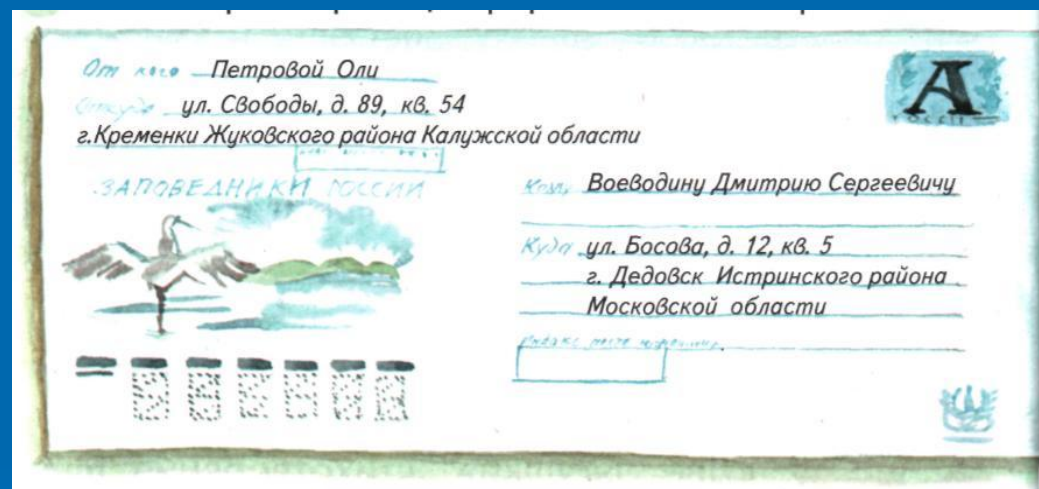 От кого Петровой Оли
Откуда ул. Свободы, д. 89, кв. 54
г.Кременки Жуковского района Калужской области
ЗАПОВЕДНИКИ РОССИИ
А
РОССИЯ
Кому Воеводину Дмитрию Сергеевичу
Куда ул. Босова, д. 12, кв. 5
г. Дедовск Истринского района
Московской области